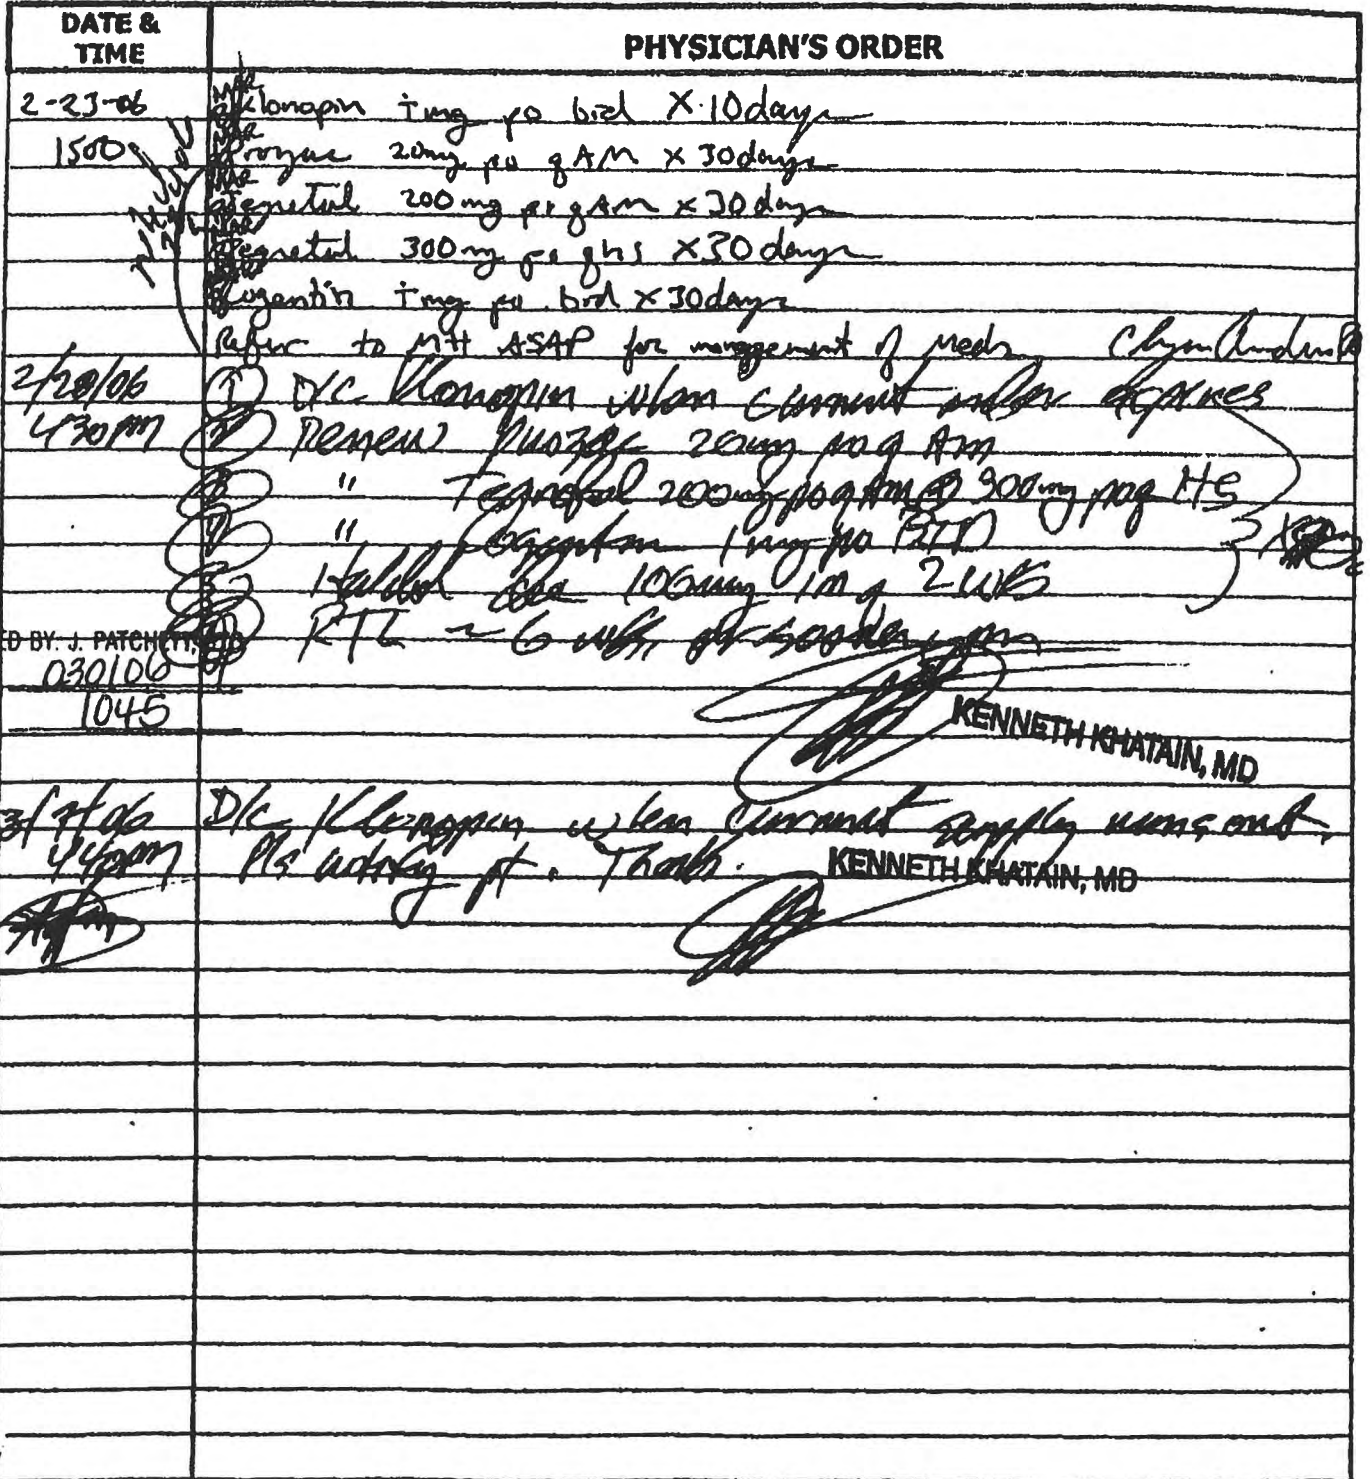 DATE & TIME
PHYSICIAN'S ORDER
2-23-06 Klonopin i mg po bid X 10 days
1500 Prozac 20mg po q AM X 30 days
Tegretol 200 mg po q AM X 30 days
Tegretol 300 mg po q hs X 30 days
Cogentin i mg po bid X 30 days
Refer to MH ASAP for management of meds
2/28/06 1) D/C Klonopin when current order expires
430pm 2) Renew Prozac 20mg po q AM
" Tegretol 200mg po q AM 300mg po q HS
" Cogentin 1 mg po BID
Haldol Dec 100mg IM q 2 wks
RTC ~ 6 wks, or sooner, prn
ED BY: J. PATCHETT,
030106
1045
KENNETH KHATAIN, MD
3/7/06 D/c Klonopin when current supply runs out.
440pm Pls notify pt. Thanks.
KENNETH KHATAIN, MD